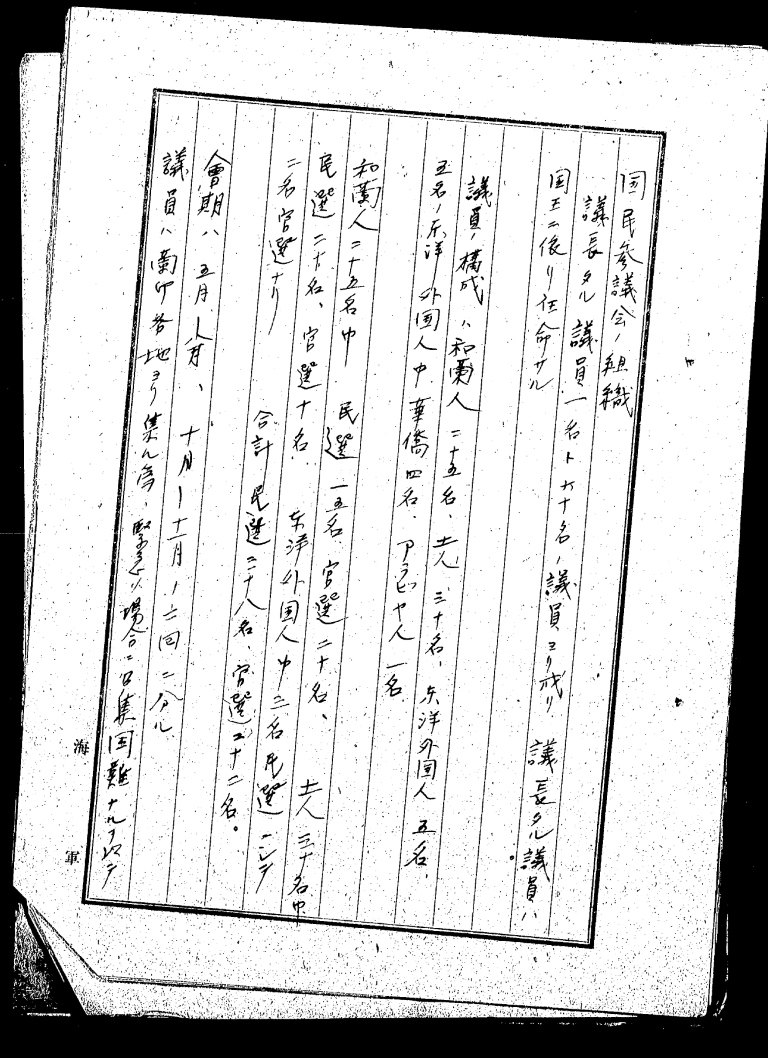 国民参議会ノ組織
議長タル議員一名ト六十名ノ議員ヨリ成リ 議長タル議員ハ
国王ニ依リ任命サル
議員ノ構成ハ和蘭人二十五名、土人三十名、东洋外国人五名、
五名ノ东洋外国人中華僑四名、アラビヤ人一名
和蘭人二十五名中 民選一五名、官選二十名、 土人三十名中
民選二十名、官選十名 东洋外国人中三名民選ニシテ
二名官選ナリ 合計民選三十八名、官選二十二名。
会期ハ五月―八月、十月―十一月ノ二回ニ分ル
議員ハ蘭印各地ヨリ集ル為、緊急ノ場合ニ召集困難ナル
海軍